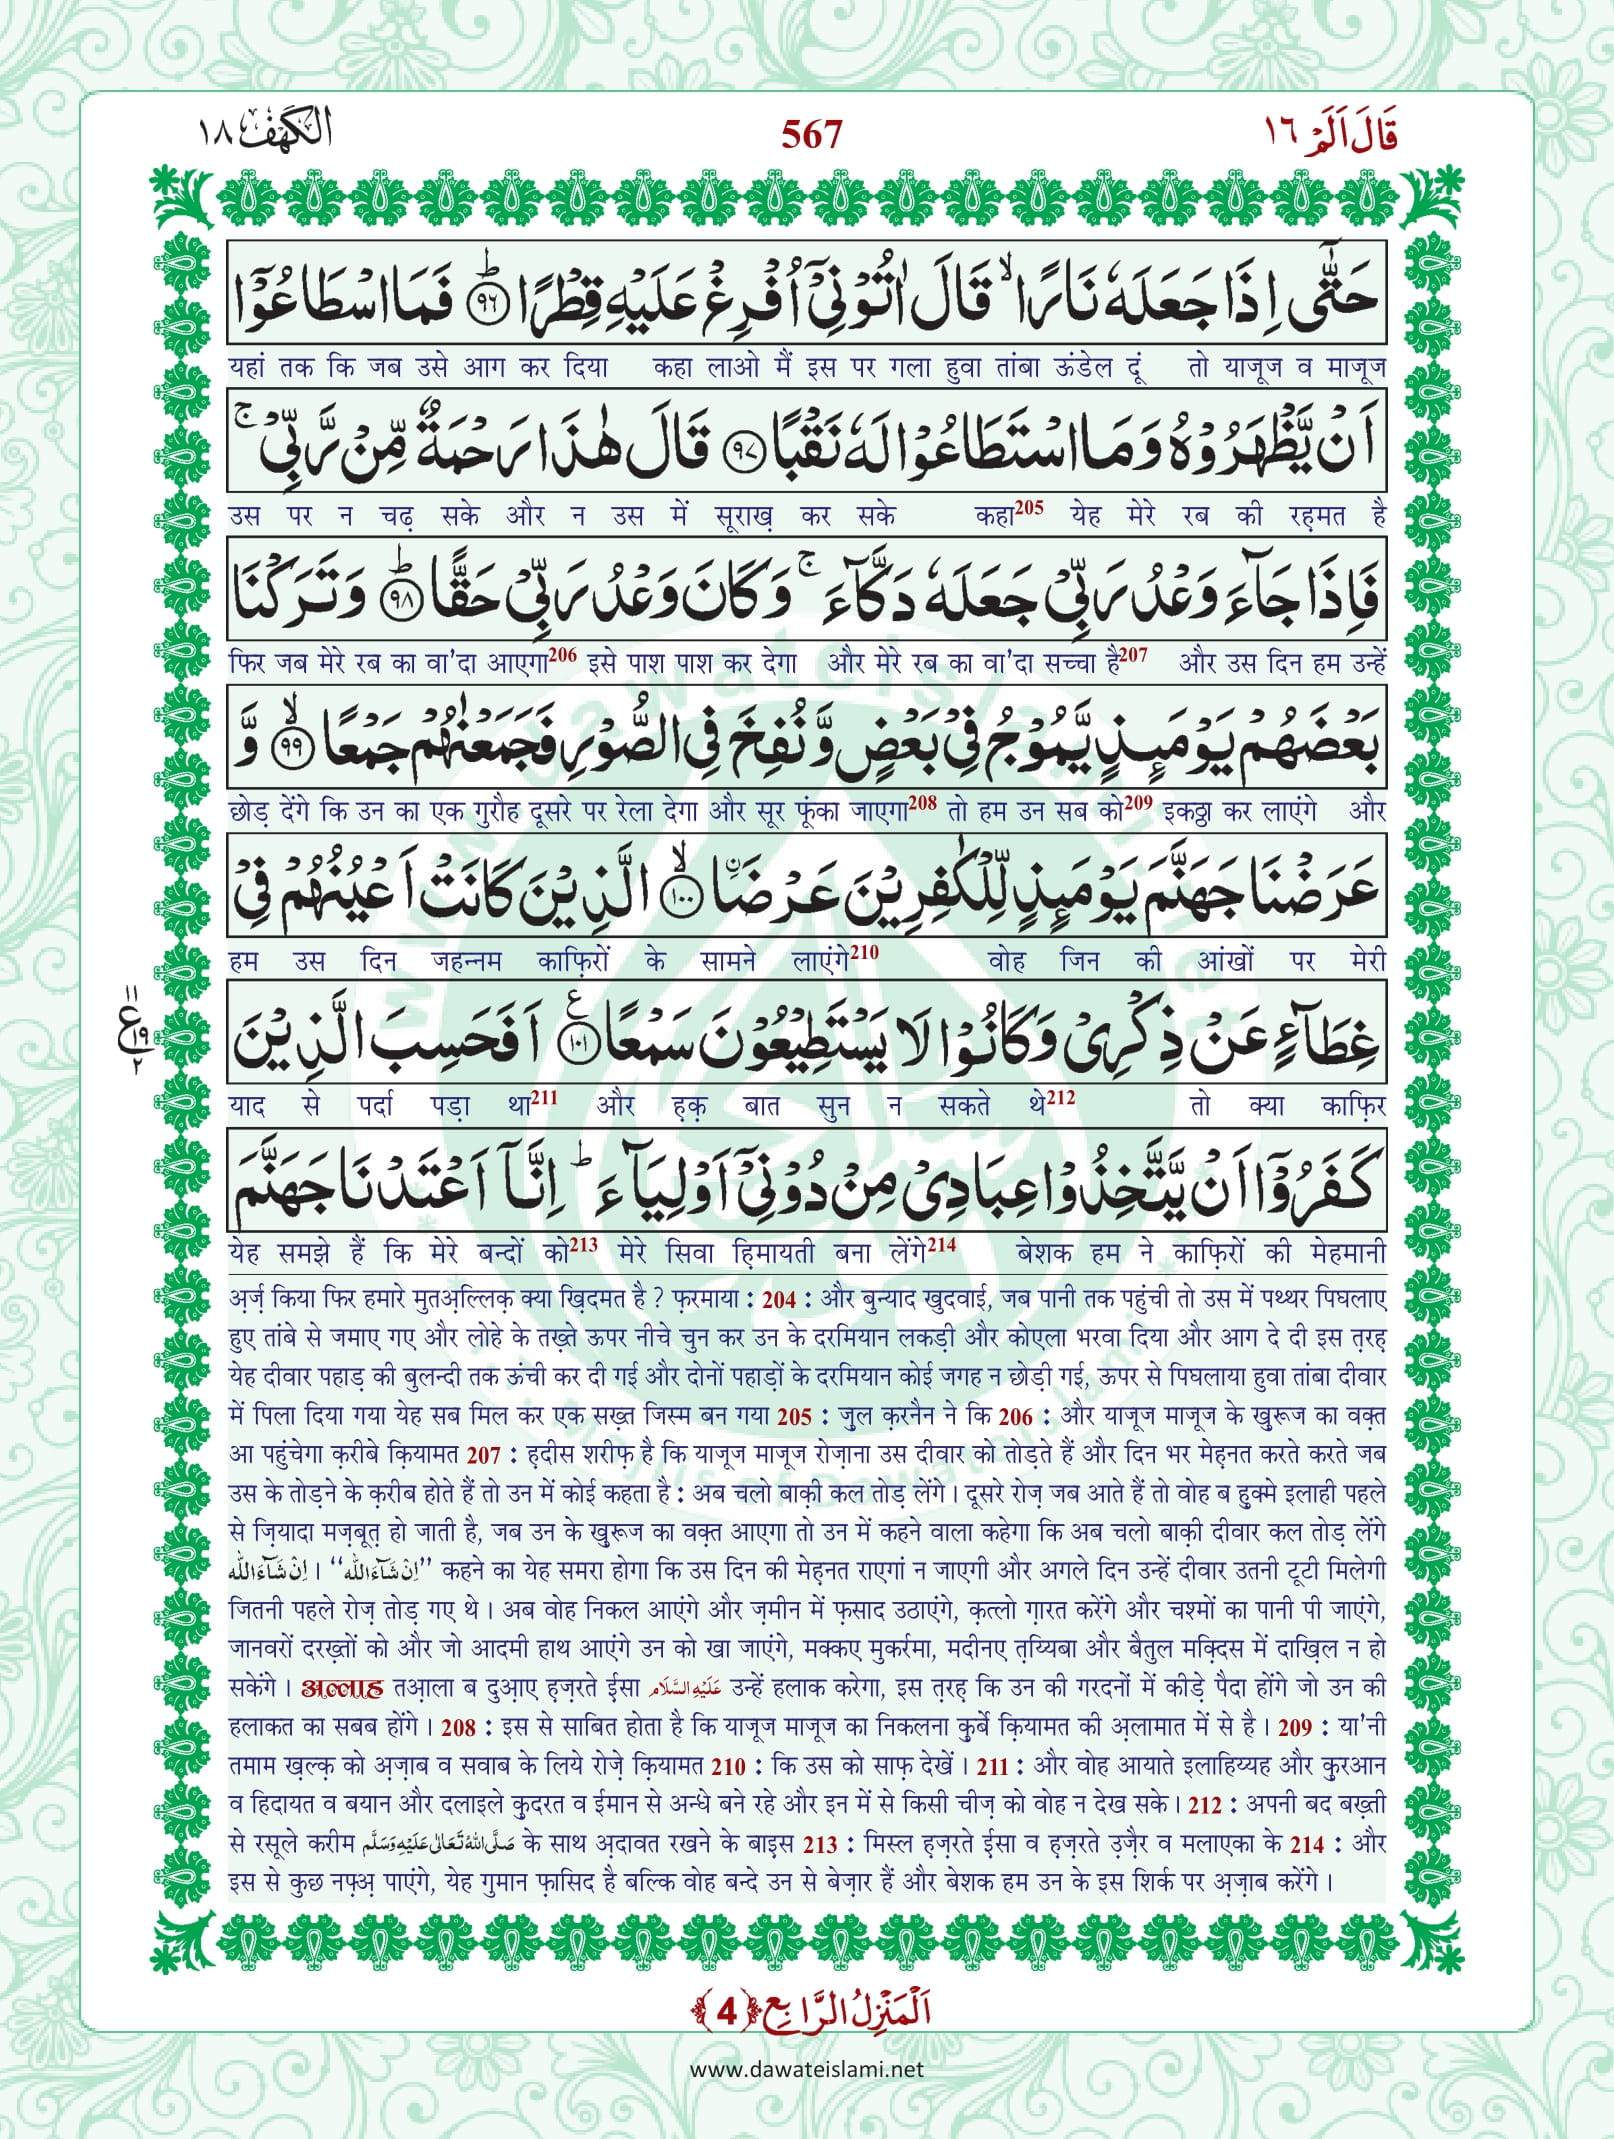 الكهف ١٨
567
قَالَ اَلَمْ ١٦
حَتّٰۤى اِذَا جَعَلَهٗ نَارًا ۙ قَالَ اٰتُوْنِیْۤ اُفْرِغْ عَلَیْهِ قِطْرًاؕ ﴿۹۶﴾ فَمَا اسْطَاعُوْۤا
यहां तक कि जब उसे आग कर दिया कहा लाओ मैं इस पर गला हुवा तांबा ऊंडेल दूं तो याजूज व माजूज
اَنْ یَّظْهَرُوْهُ وَ مَا اسْتَطَاعُوْا لَهٗ نَقْبًا ﴿۹۷﴾ قَالَ هٰذَا رَحْمَةٌ مِّنْ رَّبِّیْ ۚ
उस पर न चढ़ सके और न उस में सूराख़ कर सके कहा205 येह मेरे रब की रह़मत है
فَاِذَا جَآءَ وَعْدُ رَبِّیْ جَعَلَهٗ دَكَّآءَ ۚ وَ كَانَ وَعْدُ رَبِّیْ حَقًّاؕ ﴿۹۸﴾ وَ تَرَكْنَا
फिर जब मेरे रब का वा'दा आएगा206 इसे पाश पाश कर देगा और मेरे रब का वा'दा सच्चा है207 और उस दिन हम उन्हें
بَعْضَهُمْ یَوْمَىٕذٍ یَّمُوْجُ فِیْ بَعْضٍ وَّ نُفِخَ فِی الصُّوْرِ فَجَمَعْنٰهُمْ جَمْعًاۙ ﴿۹۹﴾ وَّ
छोड़ देंगे कि उन का एक गुरौह दूसरे पर रेला देगा और सूर फूंका जाएगा208 तो हम उन सब को209 इकठ्ठा कर लाएंगे और
عَرَضْنَا جَهَنَّمَ یَوْمَىٕذٍ لِّلْكٰفِرِیْنَ عَرْضَاۙۨ ﴿۱۰۰﴾ الَّذِیْنَ كَانَتْ اَعْیُنُهُمْ فِیْ
हम उस दिन जहन्नम काफ़िरों के सामने लाएंगे210 वोह जिन की आंखों पर मेरी
غِطَآءٍ عَنْ ذِكْرِیْ وَ كَانُوْا لَا یَسْتَطِیْعُوْنَ سَمْعًا۠ ﴿۱۰۱﴾ اَفَحَسِبَ الَّذِیْنَ
११ ع ١٩ ٢
याद से पर्दा पड़ा था211 और ह़क़ बात सुन न सकते थे212 तो क्या काफ़िर
كَفَرُوْۤا اَنْ یَّتَّخِذُوْا عِبَادِیْ مِنْ دُوْنِیْۤ اَوْلِیَآءَ ؕ اِنَّاۤ اَعْتَدْنَا جَهَنَّمَ
येह समझे हैं कि मेरे बन्दों को213 मेरे सिवा ह़िमायती बना लेंगे214 बेशक हम ने काफ़िरों की मेहमानी
अ़र्ज़ किया फिर हमारे मुतअ़ल्लिक़ क्या ख़िदमत है ? फ़रमाया : 204 : और बुन्याद खुदवाई, जब पानी तक पहुंची तो उस में पथ्थर पिघलाए
हुए तांबे से जमाए गए और लोहे के तख़्ते ऊपर नीचे चुन कर उन के दरमियान लकड़ी और कोएला भरवा दिया और आग दे दी इस त़रह़
येह दीवार पहाड़ की बुलन्दी तक ऊंची कर दी गई और दोनों पहाड़ों के दरमियान कोई जगह न छोड़ी गई, ऊपर से पिघलाया हुवा तांबा दीवार
में पिला दिया गया येह सब मिल कर एक सख़्त जिस्म बन गया 205 : जुल क़रनैन ने कि 206 : और याजूज माजूज के ख़ुरूज का वक़्त
आ पहुंचेगा क़रीबे क़ियामत 207 : ह़दीस शरीफ़ है कि याजूज माजूज रोज़ाना उस दीवार को तोड़ते हैं और दिन भर मेह़नत करते करते जब
उस के तोड़ने के क़रीब होते हैं तो उन में कोई कहता है : अब चलो बाक़ी कल तोड़ लेंगे। दूसरे रोज़ जब आते हैं तो वोह ब हुक्मे इलाही पहले
से ज़ियादा मज़बूत़ हो जाती है, जब उन के ख़ुरूज का वक़्त आएगा तो उन में कहने वाला कहेगा कि अब चलो बाक़ी दीवार कल तोड़ लेंगे
اِنْ شَآءَ اللّٰه । “اِنْ شَآءَ اللّٰه” कहने का येह समरा होगा कि उस दिन की मेह़नत राएगां न जाएगी और अगले दिन उन्हें दीवार उतनी टूटी मिलेगी
जितनी पहले रोज़ तोड़ गए थे। अब वोह निकल आएंगे और ज़मीन में फ़साद उठाएंगे, क़त्लो ग़ारत करेंगे और चश्मों का पानी पी जाएंगे,
जानवरों दरख़्तों को और जो आदमी हाथ आएंगे उन को खा जाएंगे, मक्कए मुकर्रमा, मदीनए त़य्यिबा और बैतुल मक़्दिस में दाख़िल न हो
सकेंगे। अल्लाह तआ़ला ब दुआ़ए ह़ज़रते ईसा عَلَیْهِ السَّلَام उन्हें हलाक करेगा, इस त़रह़ कि उन की गरदनों में कीड़े पैदा होंगे जो उन की
हलाकत का सबब होंगे। 208 : इस से साबित होता है कि याजूज माजूज का निकलना क़ुर्बे क़ियामत की अ़लामात में से है। 209 : या'नी
तमाम ख़ल्क़ को अ़ज़ाब व सवाब के लिये रोज़े क़ियामत 210 : कि उस को साफ़ देखें। 211 : और वोह आयाते इलाहिय्यह और क़ुरआन
व हिदायत व बयान और दलाइले क़ुदरत व ईमान से अन्धे बने रहे और इन में से किसी चीज़ को वोह न देख सके। 212 : अपनी बद बख़्ती
से रसूले करीम صَلَّی اللّٰهُ تَعَالٰی عَلَیْهِ وَسَلَّم के साथ अ़दावत रखने के बाइस 213 : मिस्ल ह़ज़रते ईसा व ह़ज़रते उ़ज़ैर व मलाएका के 214 : और
इस से कुछ नफ़्अ़ पाएंगे, येह गुमान फ़ासिद है बल्कि वोह बन्दे उन से बेज़ार हैं और बेशक हम उन के इस शिर्क पर अ़ज़ाब करेंगे।
اَلْمَنْزِلُ الرَّابِع ﴿4﴾
www.dawateislami.net